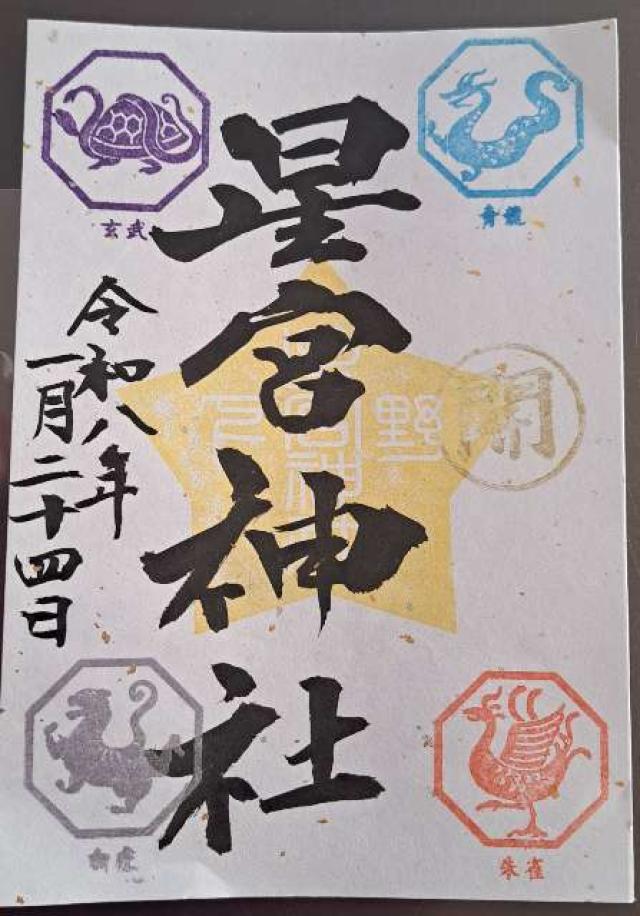 青龍
玄武
星宮神社
開
野
令和八年
一月二十四日
朱雀